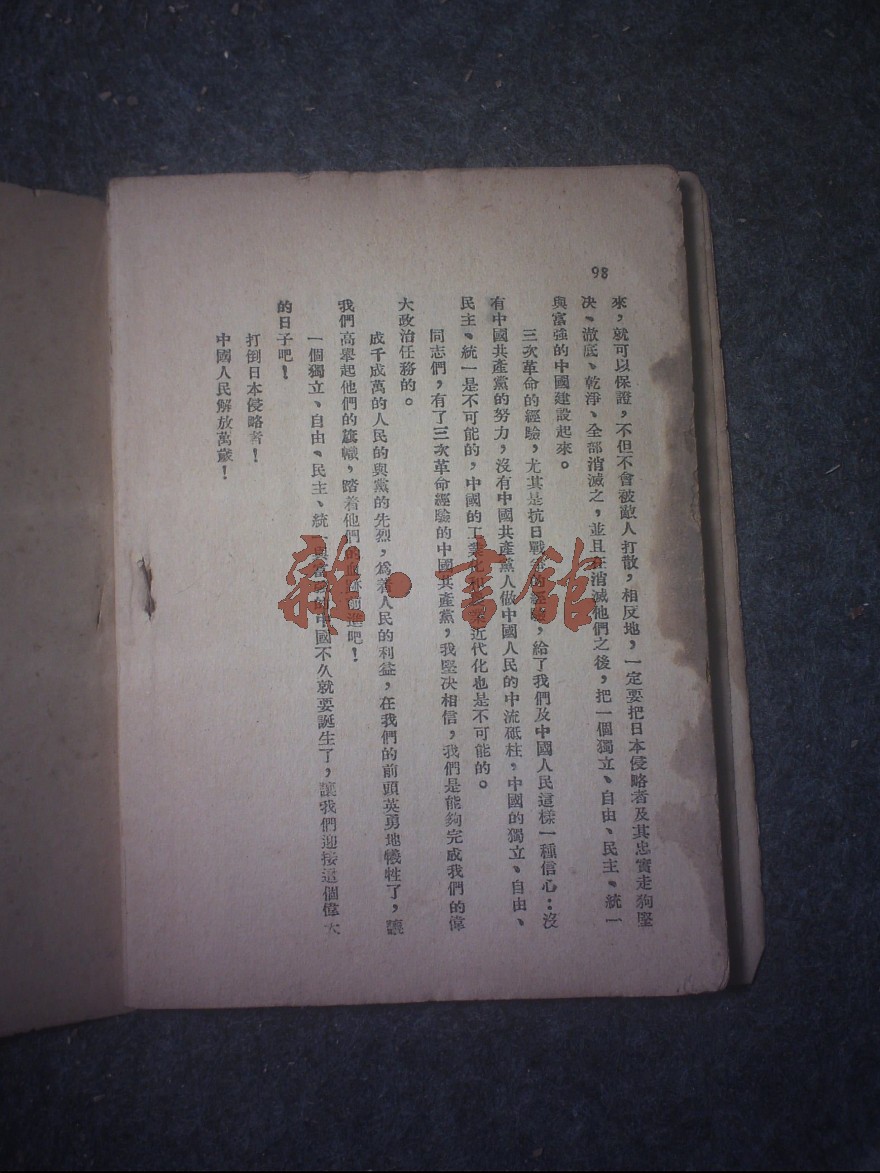 98
來，就可以保證，不但不會被敵人打散，相反地，一定要把日本侵略者及其忠實走狗堅
决、澈底、乾淨、全部消滅之，並且在消滅他們之後，把一個獨立、自由、民主、統一
與富強的中國建設起來。
三次革命的經驗，尤其是抗日戰爭的經驗，給了我們及中國人民這樣一種信心：沒
有中國共產黨的努力，沒有中國共產黨人做中國人民的中流砥柱，中國的獨立、自由、
民主、統一是不可能的，中國的工業化和近代化也是不可能的。
同志們，有了三次革命經驗的中國共產黨，我堅决相信，我們是能夠完成我們的偉
大政治任務的。
成千成萬的人民的與黨的先烈，爲着人民的利益，在我們的前頭英勇地犧牲了，讓
我們高舉起他們的旗幟，踏着他們的前進吧！
一個獨立、自由、民主、統的中國不久就要誕生了，讓我們迎接這個偉大
的日子吧！
打倒日本侵略者！
中國人民解放萬歲！
雜·書館